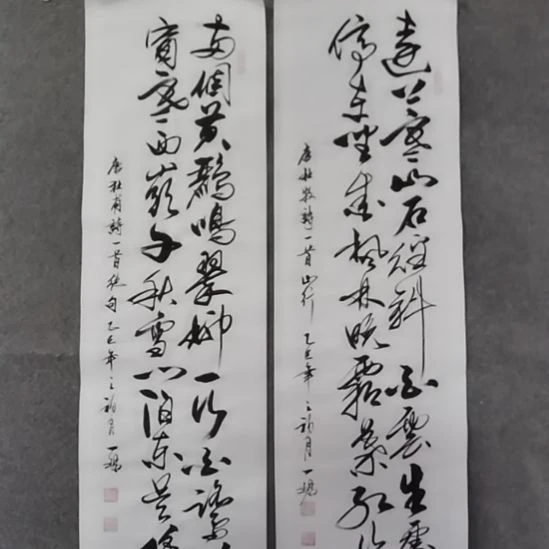 遠上寒山石徑斜白雲生處
停車坐愛楓林晚霜葉紅於
唐杜牧詩一首山行乙巳年之初月一
兩個黃鸝鳴翠柳一行白鷺
窗含西嶺千秋雪門泊東吳
唐杜甫詩一首絕句乙巳年之初月一